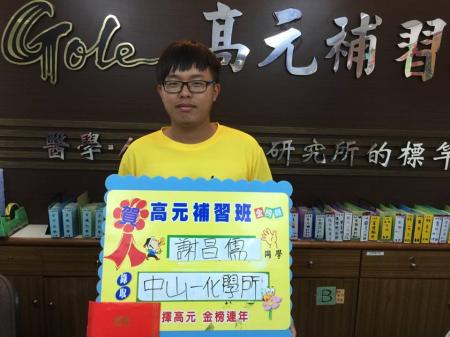 Gole 高元補習
醫學・ 研究所的標竿
賀 高元補習班 金榜題
謝昌儒 同學
錄取 中山-化學所
擇高元 金榜連年
B